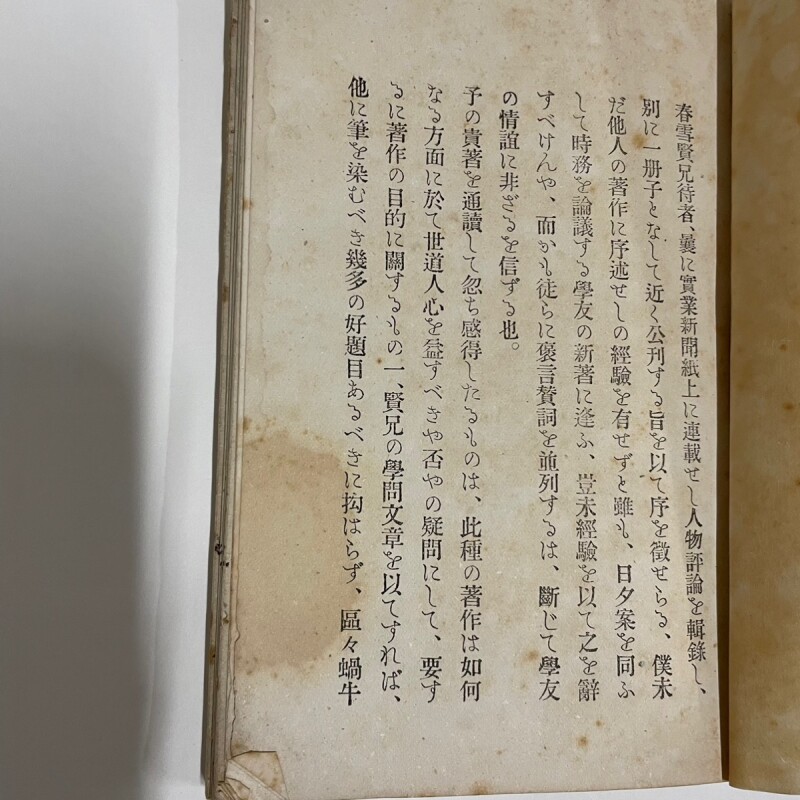 春雪賢兄待者、曩に實業新聞紙上に連載せし人物評論を輯錄し、
別に一册子となして近く公刊する旨を以て序を徵せらる、僕未
だ他人の著作に序述せしの經驗を有せずと雖も、日夕案を同ふ
して時務を論議する學友の新著に逢ふ、豈未經驗を以て之を辭
すべけんや、而かも徒らに褒言贊詞を並列するは、斷じて學友
の情誼に非ざるを信ずる也。
予の貴著を通讀して忽ち感得したるものは、此種の著作は如何
なる方面に於て世道人心を益すべきや否やの疑問にして、要す
るに著作の目的に關するもの一、賢兄の學問文章を以てすれば、
他に筆を染むべき幾多の好題目あるべきに拘はらず、區々蝸牛